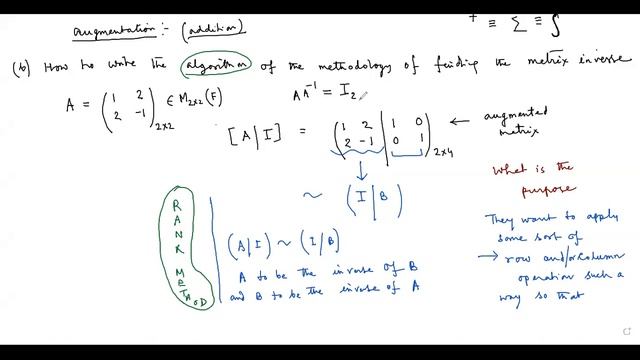 Augmentation :- (addition)
+ ≡ Σ ≡ ∫
(b) How to write the algorithm of the methodology of finding the matrix inverse
A = ( 1 2 ; 2 -1 )2x2 ∈ M2x2 (F)
A A^-1 = I2
[A | I] = ( 1 2 | 1 0 ; 2 -1 | 0 1 )2x4 ← augmented matrix
~ (I | B)
RANK METHOD
(A | I) ~ (I | B)
A to be the inverse of B
and B to be the inverse of A
What is the
purpose
They want to apply
some sort of
→ row and/or column
operation such a
way so that